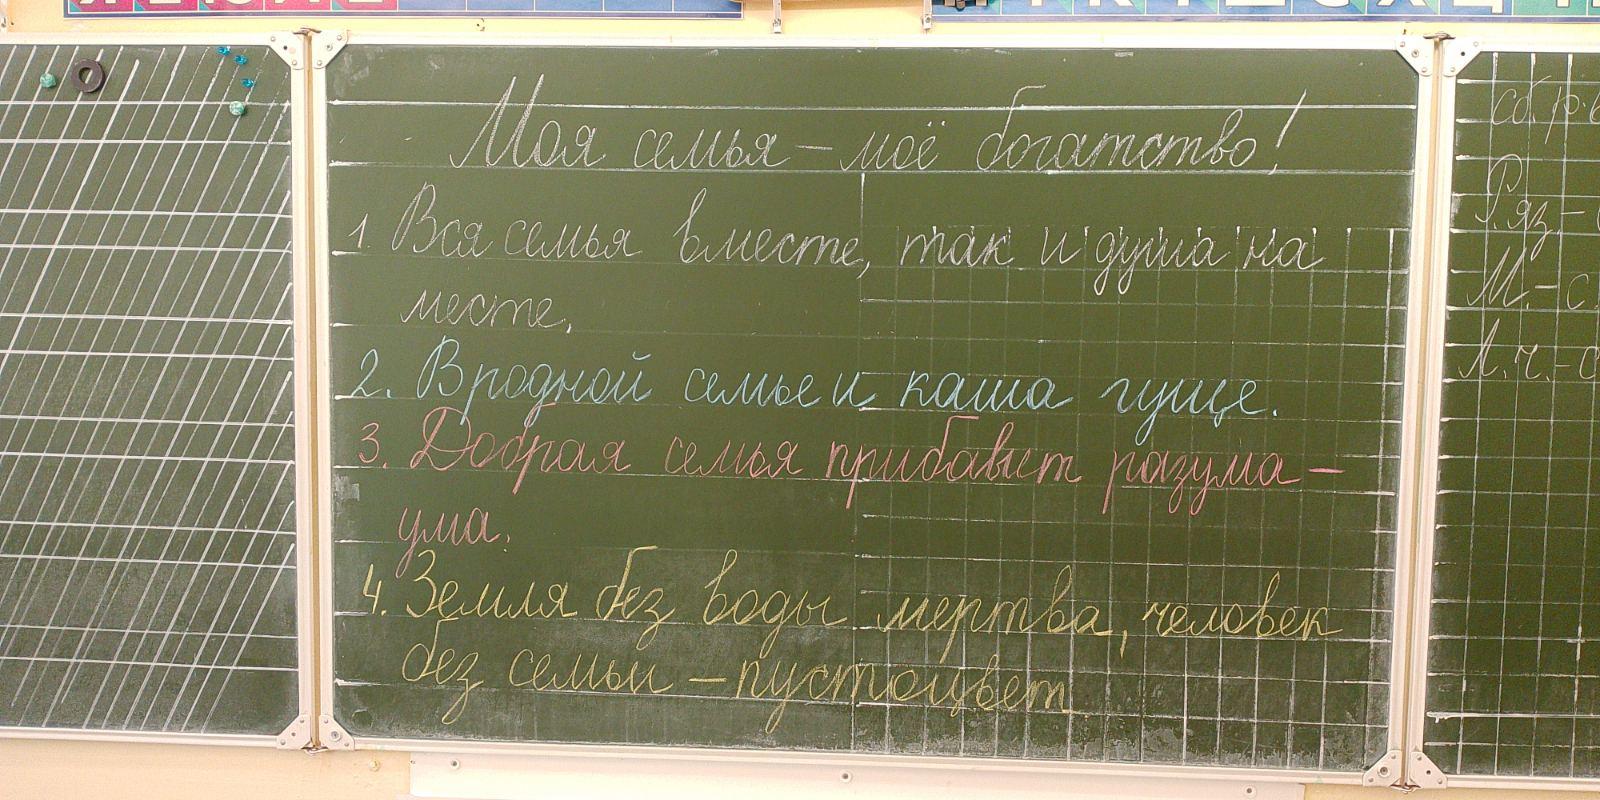 Моя семья – моё богатство!
1. Вся семья вместе, так и душа на
месте.
2. В родной семье и каша гуще.
3. Добрая семья прибавит разума –
ума.
4. Земля без воды мертва, человек
без семьи – пустоцвет
Р. яз. –
М. – с
Л. ч. – с